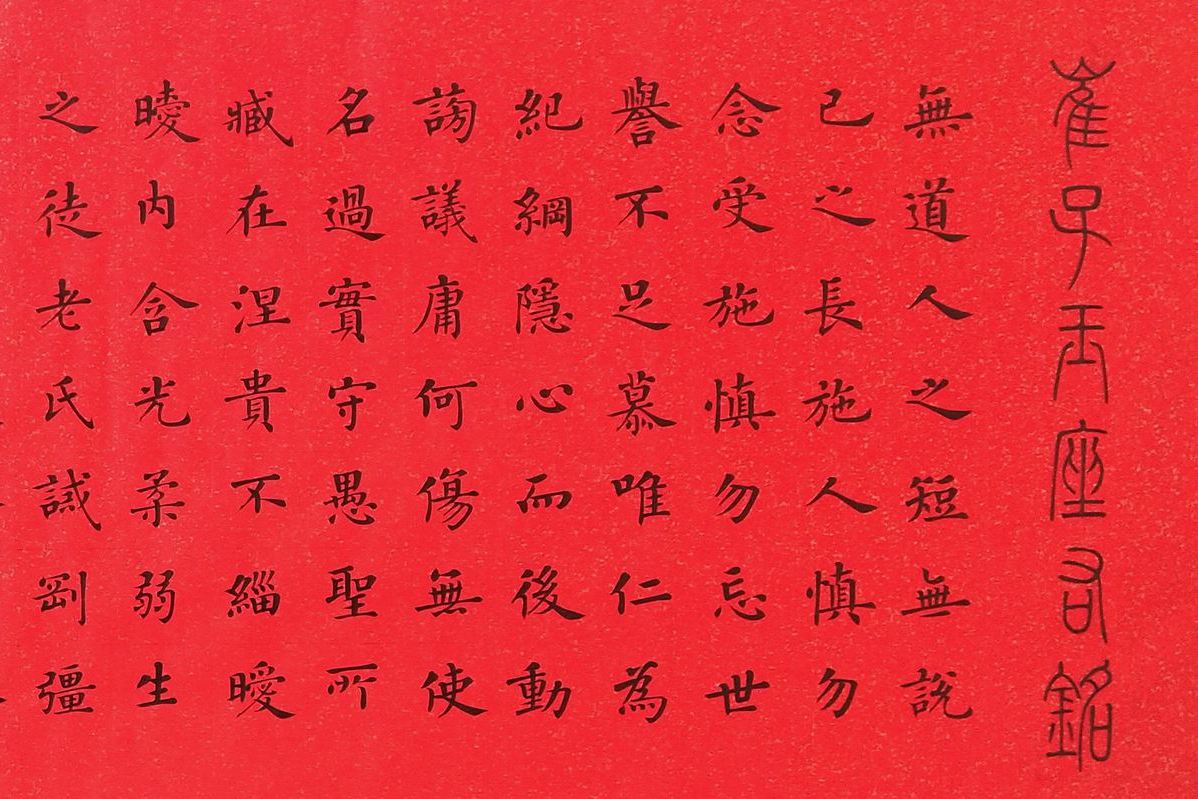 崔子玉座右銘
無道人之短無說
己之長施人慎勿
念受施慎勿忘世
譽不足慕唯仁為
紀綱隱心而後動
謗議庸何傷無使
名過實守愚聖所
臧在涅貴不緇曖
曖內含光柔弱生
之徒老氏誡剛彊